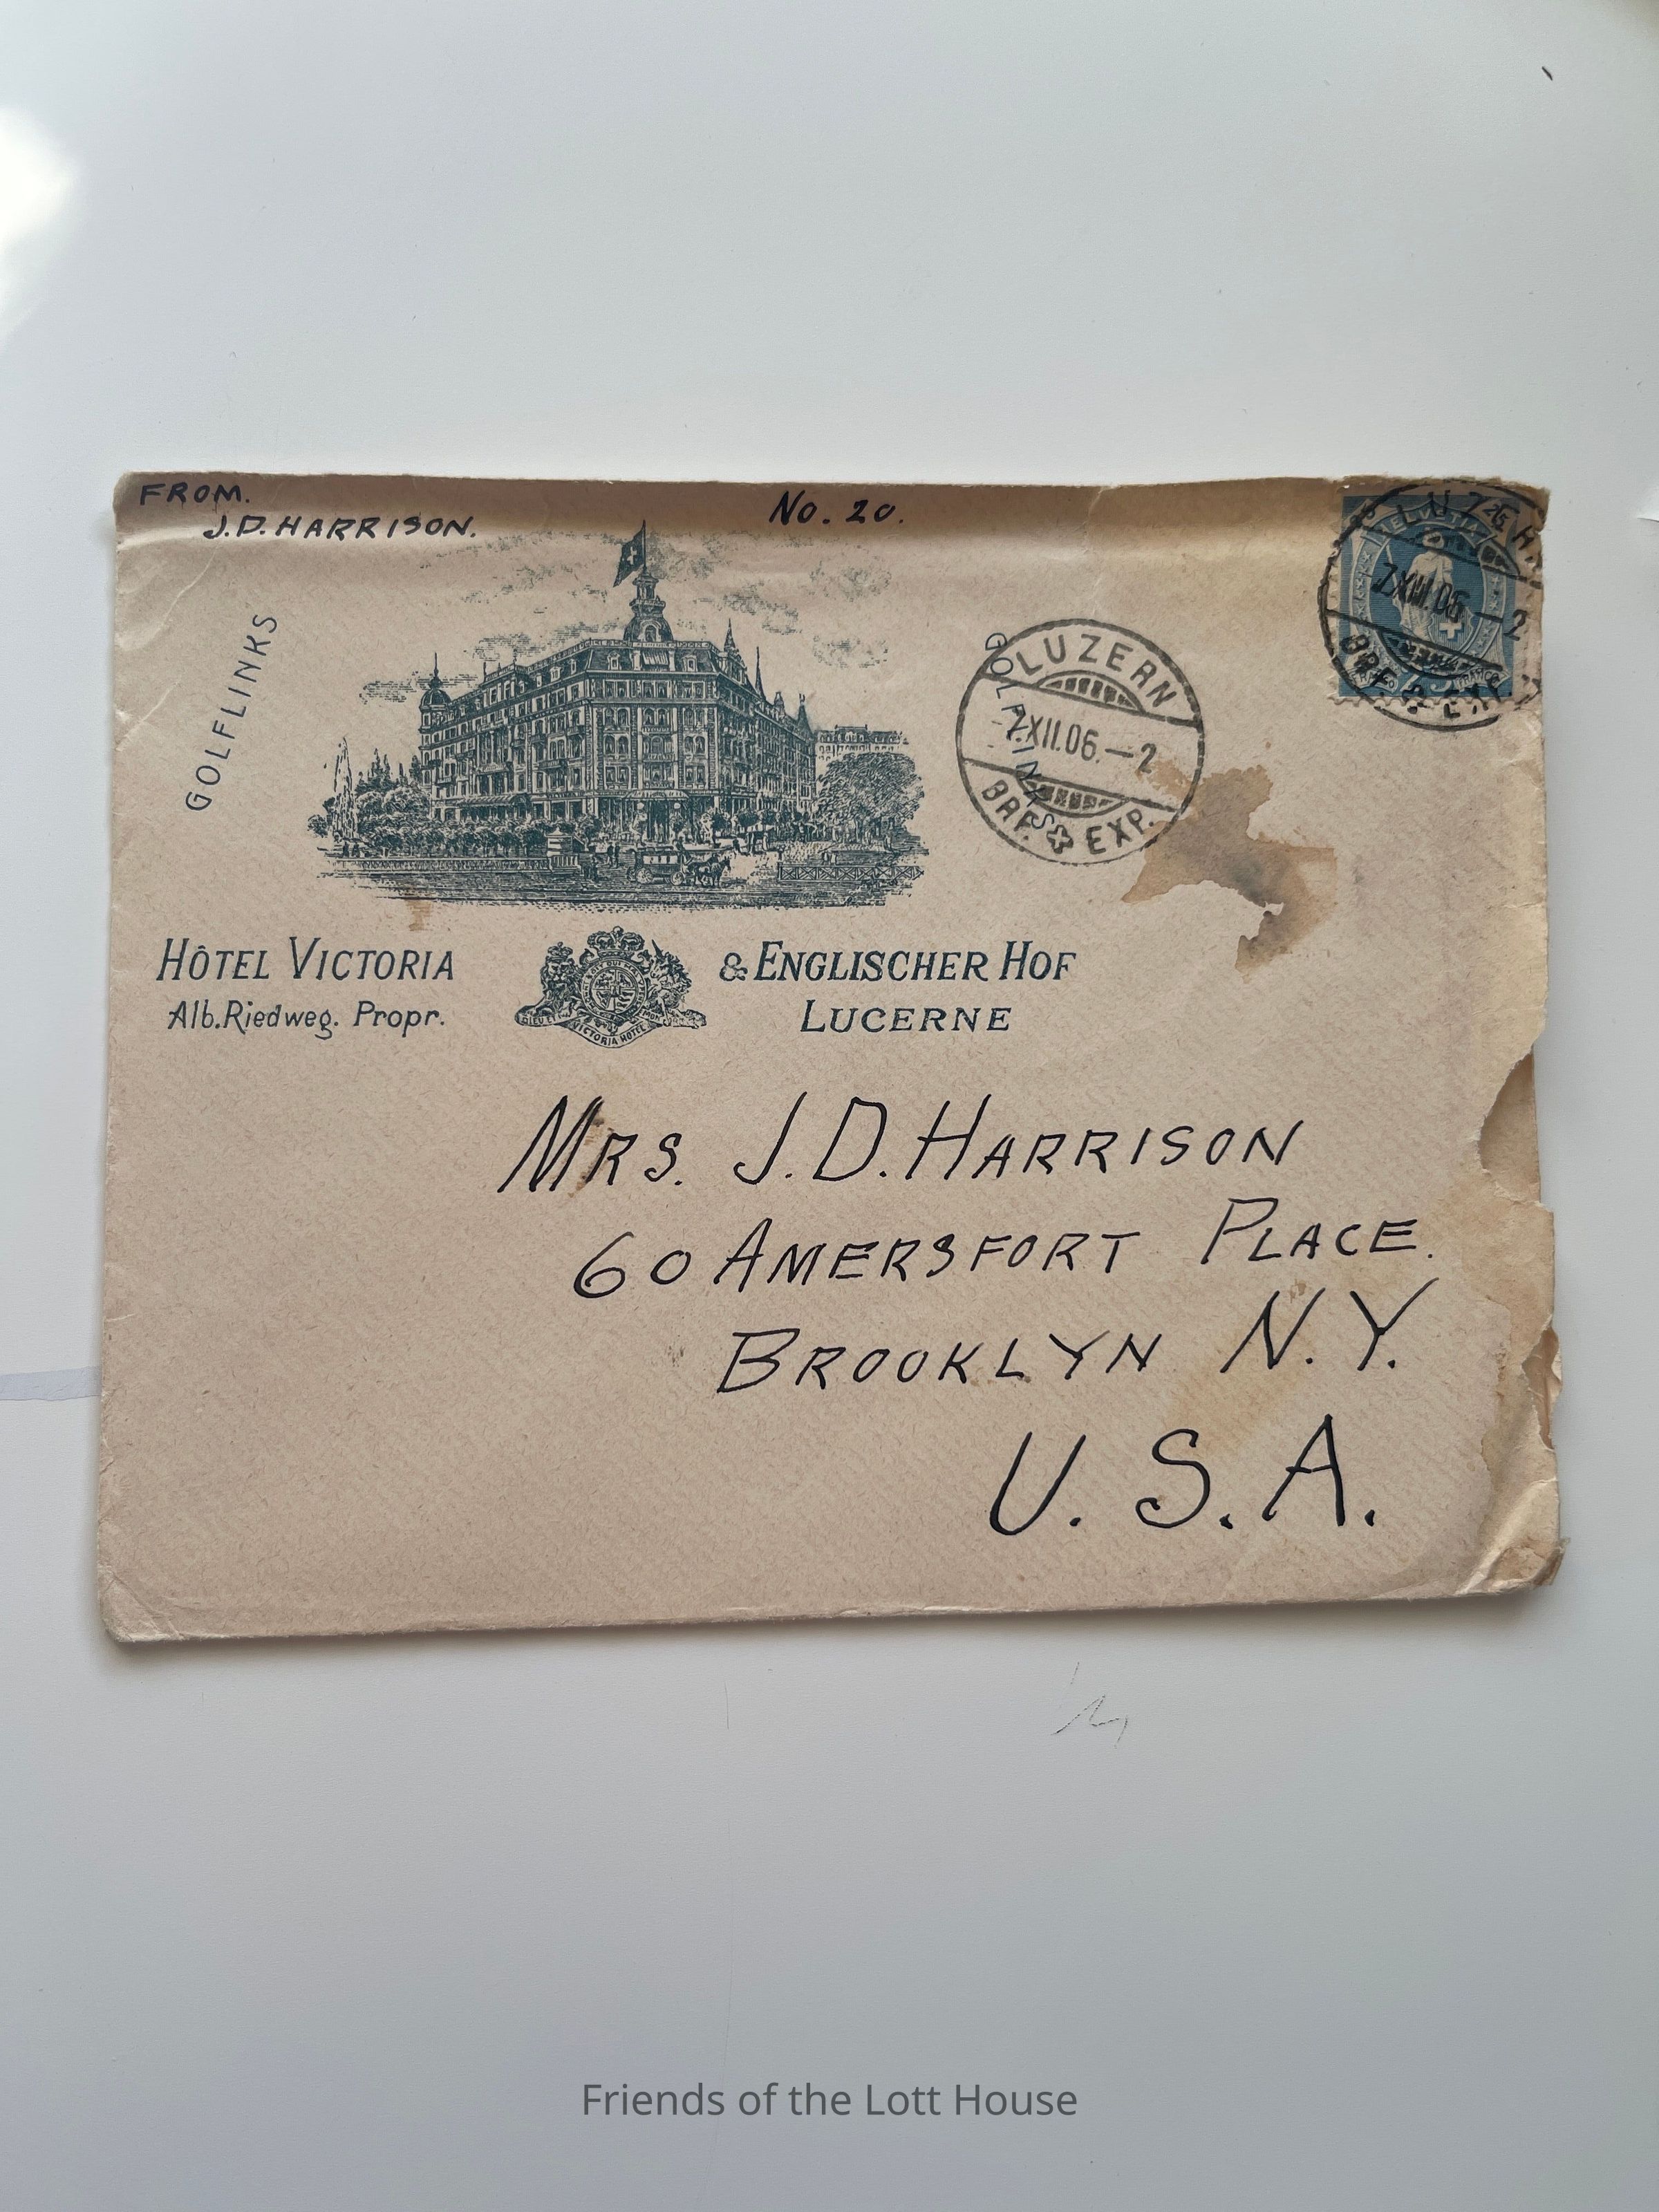 FROM.
J.D. HARRISON.
No. 20.
GOLFLINKS
GOLFLINKS
LUZERN
7.XII.06.—2
BRF. EXP.
HELVETIA
LUZERN
7.XII.06.—2
BRF. EXP.
FRANCO
HÔTEL VICTORIA
& ENGLISCHER HOF
Alb. Riedweg. Propr.
VICTORIA HOTEL
LUCERNE
MRS. J. D. HARRISON
60 AMERSFORT PLACE.
BROOKLYN N. Y.
U. S. A.
Friends of the Lott House